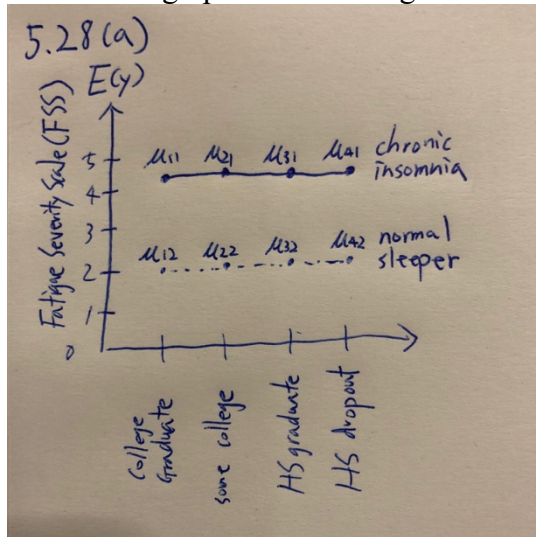 5.28(a)
E(y)
Fatigue Severity Scale (FSS)
5
4
3
2
1
0
μ11 μ21 μ31 μ41
chronic
insomnia
μ12 μ22 μ32 μ42
normal
sleeper
College
Graduate
some college
HS graduate
HS dropout